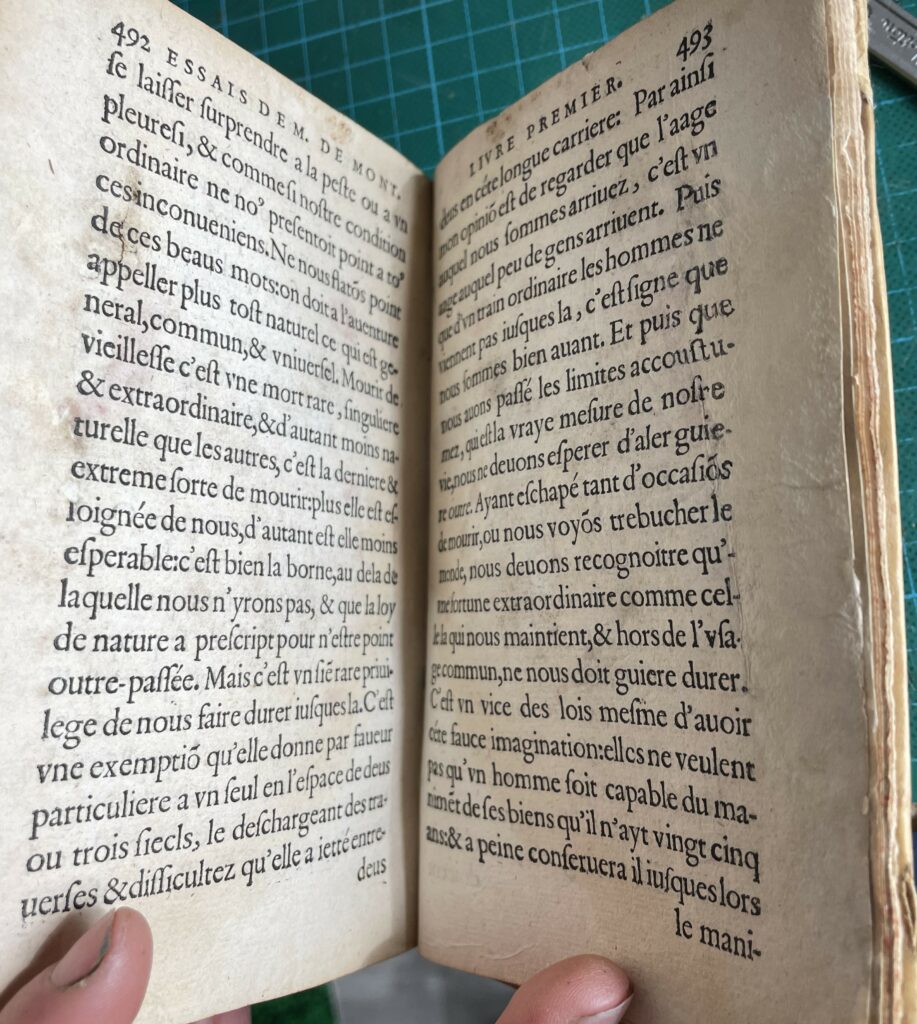 492 ESSAIS DE M. DE MONT.
ſe laiſſer ſurprendre a la peſte ou a vn
pleureſi, & comme ſi noſtre condition
ordinaire ne no' preſentoit point a to'
ces inconueniens. Ne nous flatõs point
de ces beaus mots: on doit a l'auenture
appeller plus toſt naturel ce qui eſt ge-
neral, commun, & vniuerſel. Mourir de
vieilleſſe c'eſt vne mort rare, ſinguliere
& extraordinaire, & d'autant moins na-
turelle que les autres, c'eſt la derniere &
extreme ſorte de mourir: plus elle eſt eſ-
loignée de nous, d'autant eſt elle moins
eſperable: c'eſt bien la borne, au dela de
laquelle nous n'yrons pas, & que la loy
de nature a preſcript pour n'eſtre point
outre-paſſée. Mais c'eſt vn ſiẽ rare priui-
lege de nous faire durer iuſques la. C'eſt
vne exemptiõ qu'elle donne par faueur
particuliere a vn ſeul en l'eſpace de deus
ou trois ſiecls, le deſchargeant des tra-
uerſes & difficultez qu'elle a ietté entre-
deus
LIVRE PREMIER. 493
deus en céte longue carriere: Par ainſi
mon opiniõ eſt de regarder que l'aage
auquel nous ſommes arriuez, c'eſt vn
aage auquel peu de gens arriuent. Puis
que d'vn train ordinaire les hommes ne
viennent pas iuſques la, c'eſt ſigne que
nous ſommes bien auant. Et puis que
nous auons paſſé les limites accouſtu-
mez, qui eſt la vraye meſure de noſtre
vie, nous ne deuons eſperer d'aler guie-
re outre. Ayant eſchapé tant d'occaſiõs
de mourir, ou nous voyõs trebucher le
monde, nous deuons recognoitre qu'-
vne fortune extraordinaire comme cel-
le la qui nous maintient, & hors de l'vſa-
ge commun, ne nous doit guiere durer.
C'eſt vn vice des lois meſme d'auoir
céte fauce imagination: elles ne veulent
pas qu'vn homme ſoit capable du ma-
nimẽt de ſes biens qu'il n'ayt vingt cinq
ans: & a peine conſeruera il iuſques lors
le mani-